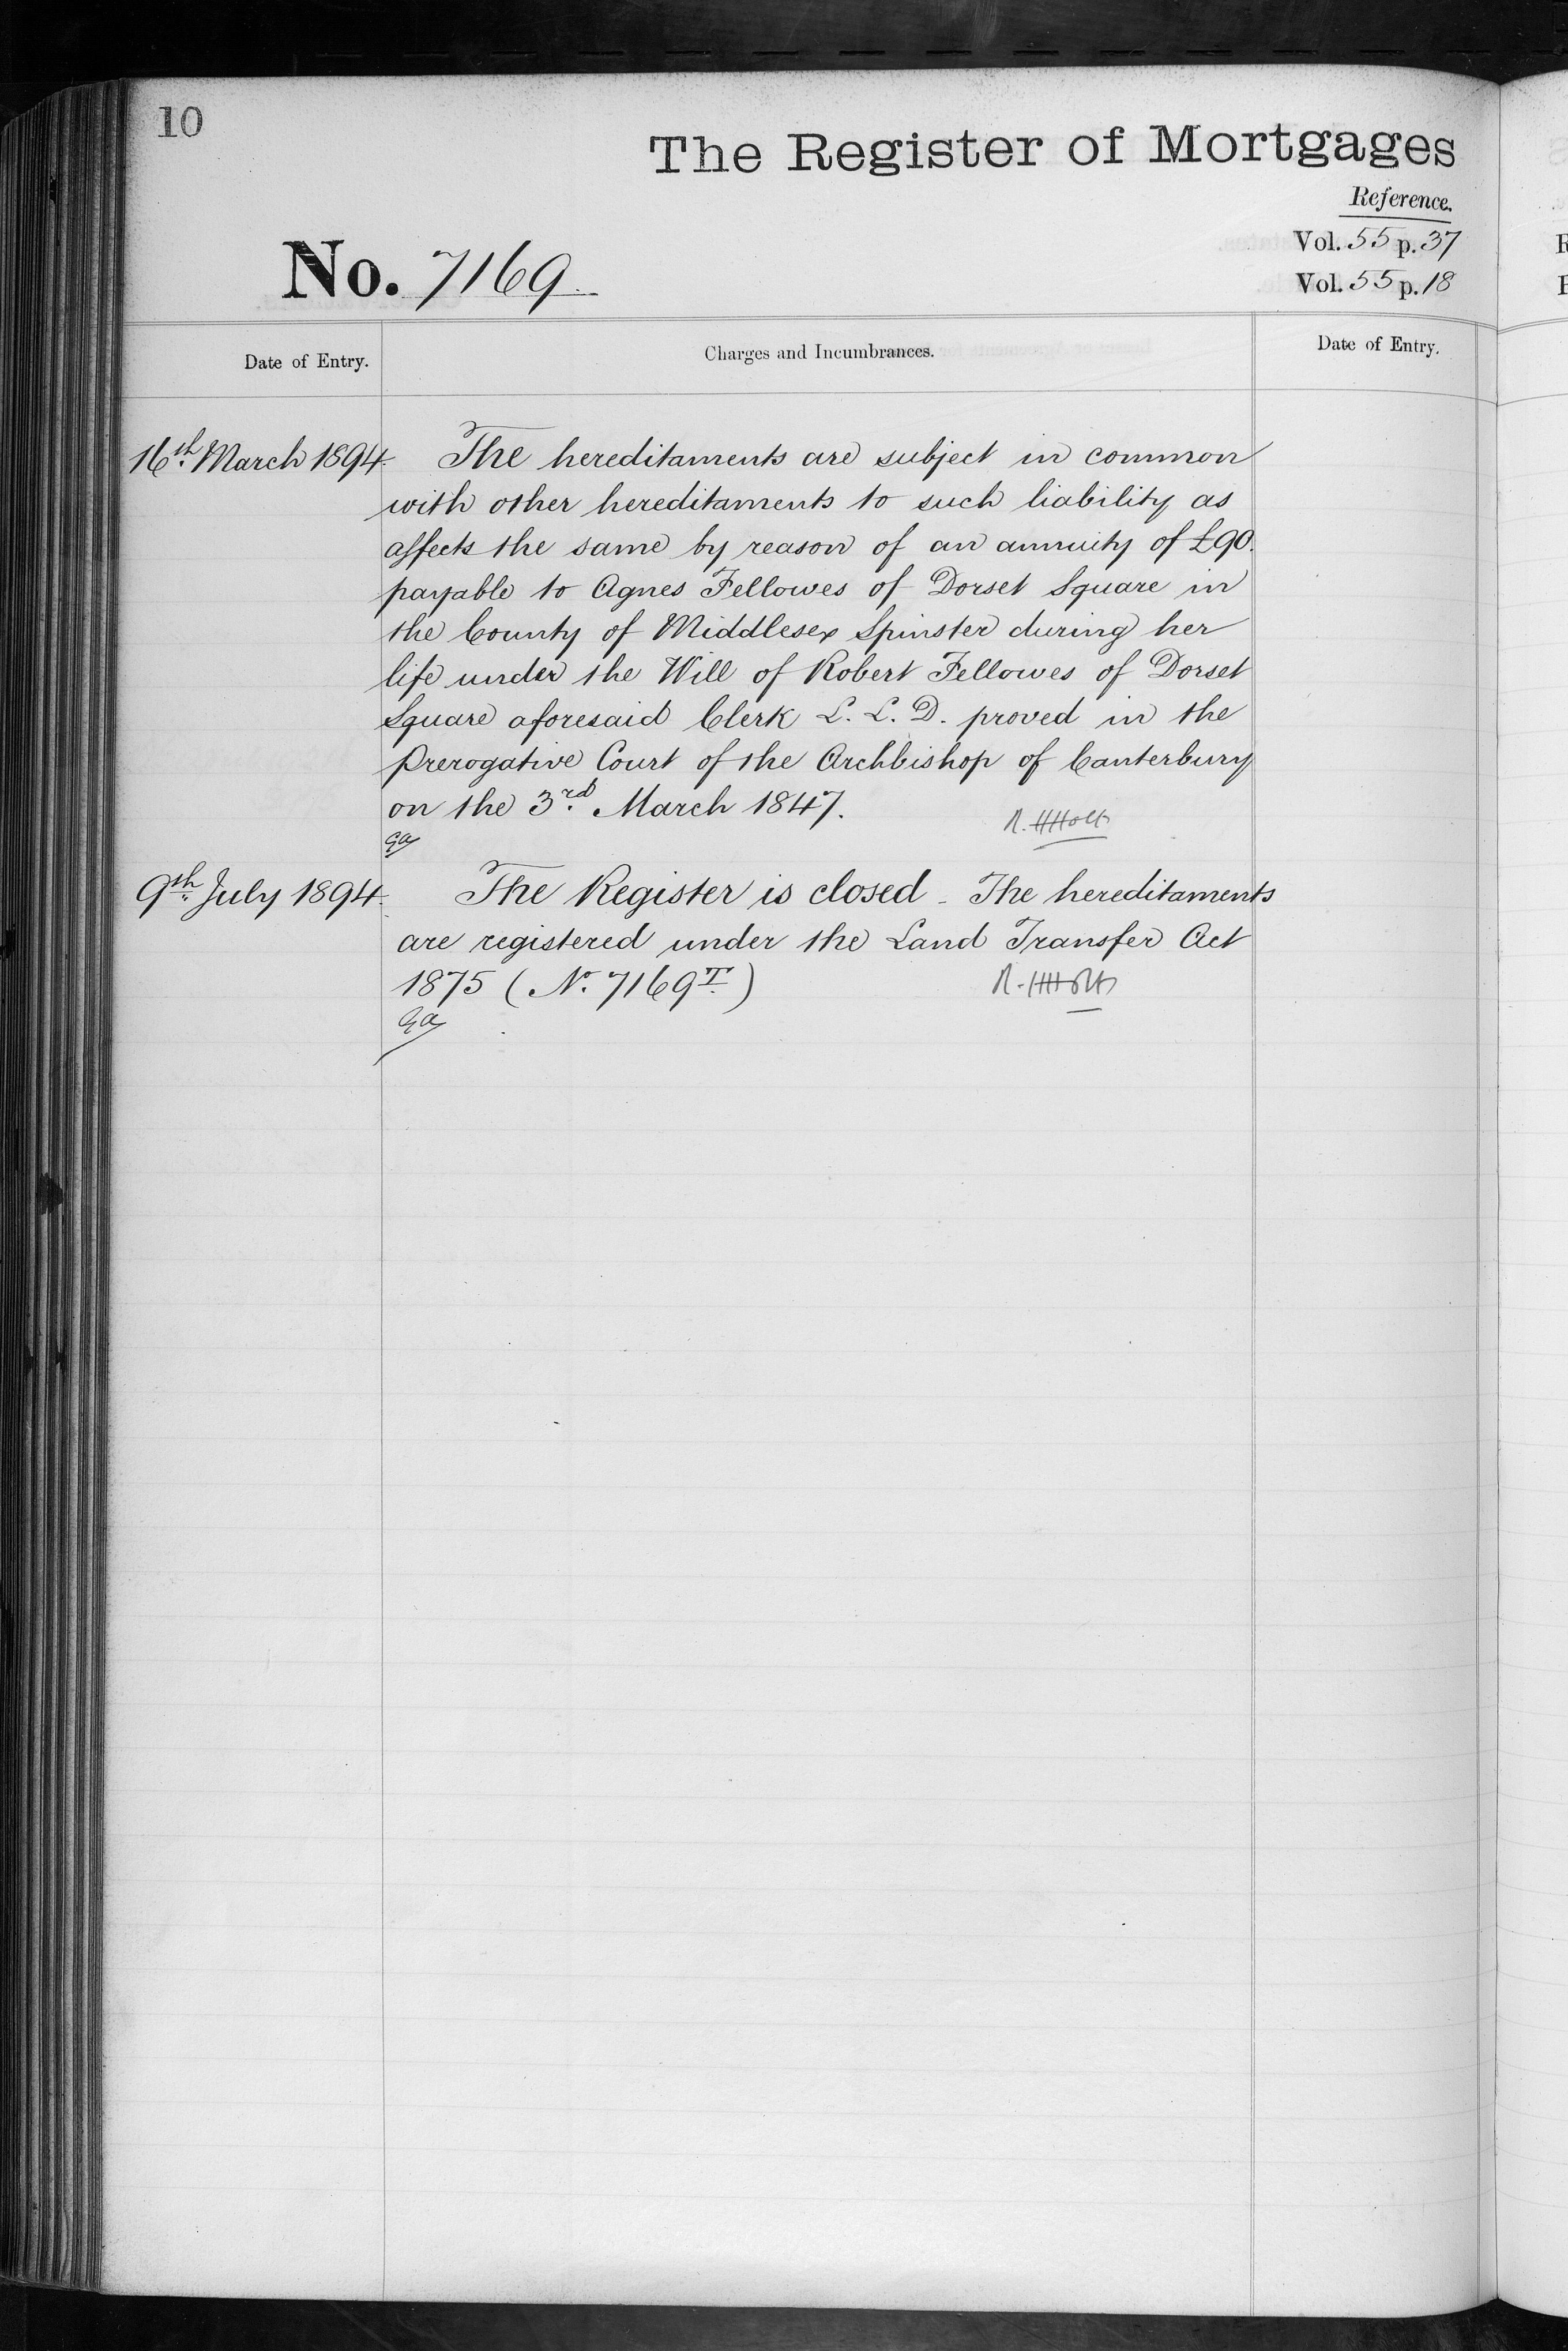 10
The Register of Mortgages
Reference.
Vol. 55 p. 37
No. 7169
Vol. 55 p. 18
Date of Entry.
Charges and Incumbrances.
Date of Entry.
16th March 1894. The hereditaments are subject in common
with other hereditaments to such liability as
affects the same by reason of an annuity of £90.
payable to Agnes Fellowes of Dorset Square in
the County of Middlesex Spinster during her
life under the Will of Robert Fellowes of Dorset
Square aforesaid Clerk L. L. D. proved in the
Prerogative Court of the Archbishop of Canterbury
on the 3rd March 1847.
R. H Holt
9th July 1894. The Register is closed - The hereditaments
are registered under the Land Transfer Act
1875 (No. 7169T)
R. H Holt